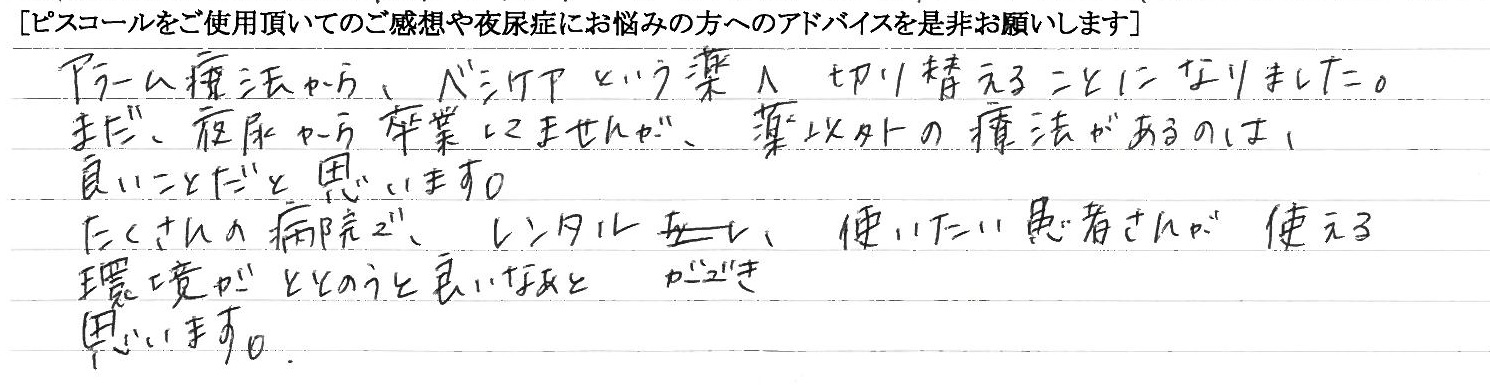 [ピスコールをご使用頂いてのご感想や夜尿症にお悩みの方へのアドバイスを是非お願いします]
アラーム療法から、ベシケアという薬へ切り替えることになりました。
まだ、夜尿から卒業してませんが、薬以外の療法があるのは、
良いことだと思います。
たくさんの病院で、レンタル、使いたい患者さんが使える
環境がととのうと良いなあと
ができ
思います。